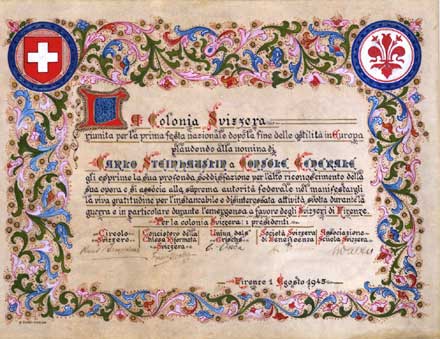 La Colonia Svizzera
riunita per la prima festa nazionale dopo la fine delle ostilità in Europa
plaudendo alla nomina di
Carlo Steinhauslin a Console Generale
gli esprime la sua profonda soddisfazione per l'alto riconoscimento della
sua opera e si associa alla suprema autorità federale nel manifestargli
la viva gratitudine per l'instancabile e disinteressata attività, svolta durante la
guerra e in particolare durante l'emergenza a favore degli Svizzeri di Firenze.
Per la colonia svizzera: i presidenti
Circolo Concistoro della Uniun dals Società Svizzera Associazione
Svizzero Chiesa Riformata Grischs di Beneficenza Scuola Svizzera
Svizzera
Firenze 1 Agosto 1945